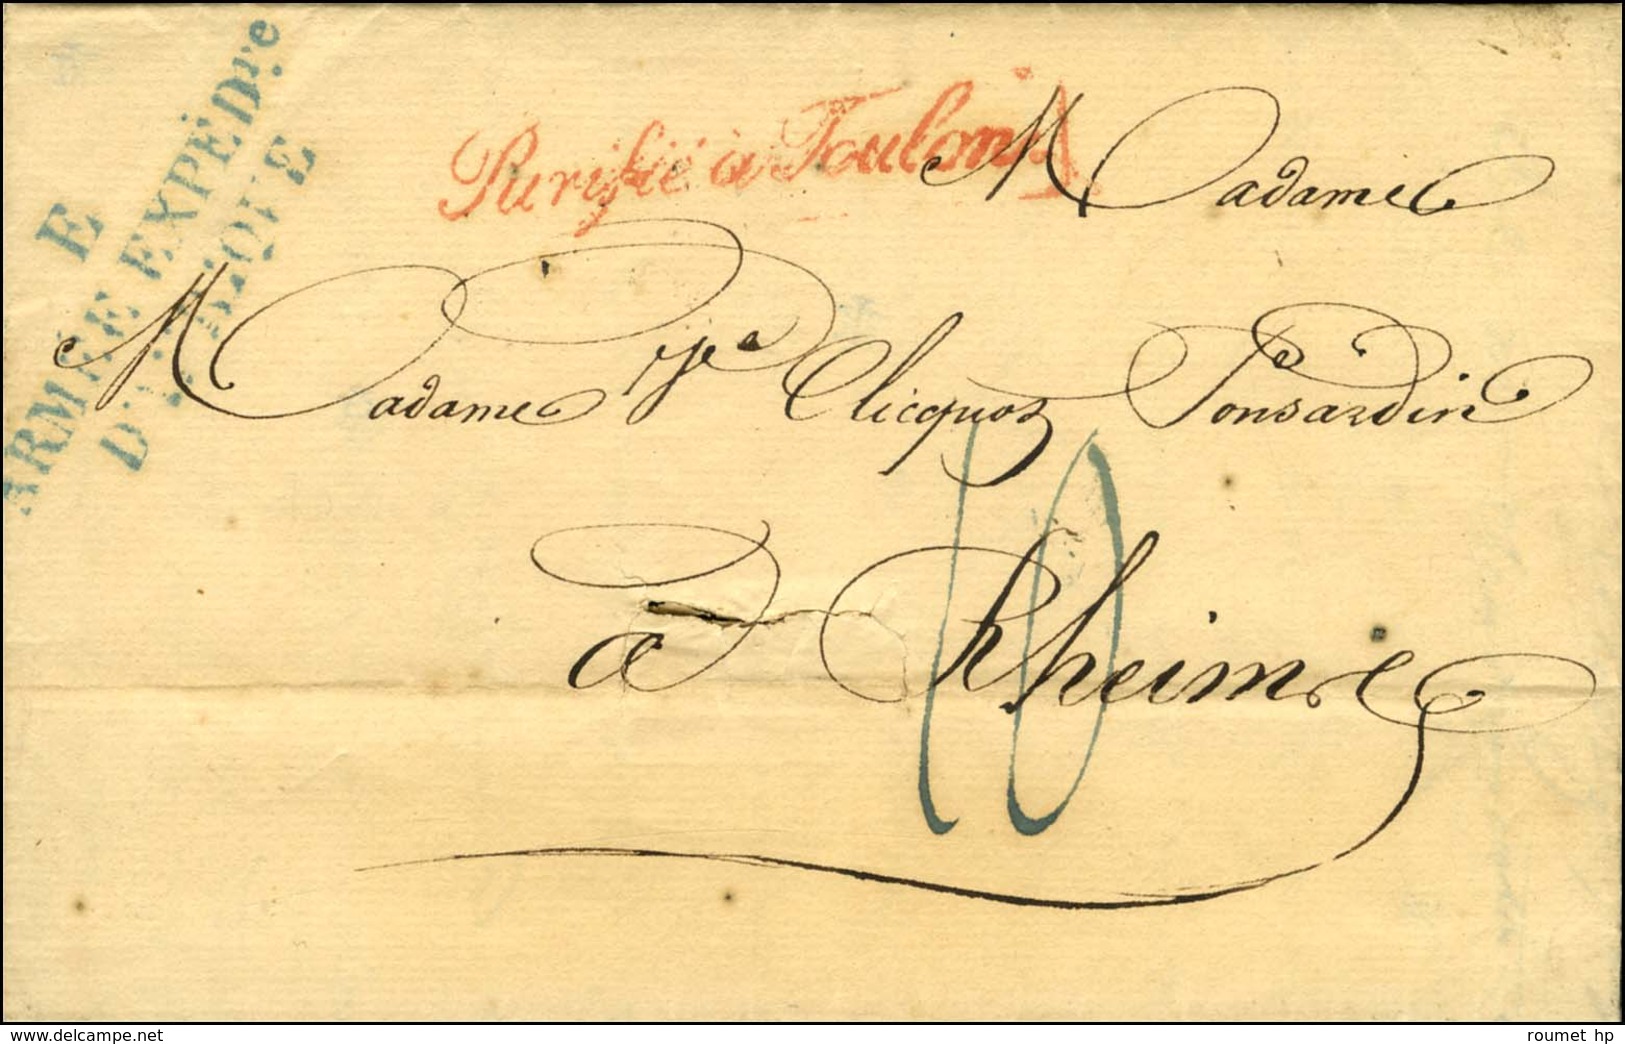 E
ARMÉE EXPÉD.re
D'AFRIQUE
Purifié à Toulon
Madame
Madame Ve Clicquot Ponsardin
10
à Rheims
www.delcampe.net
roumet hp